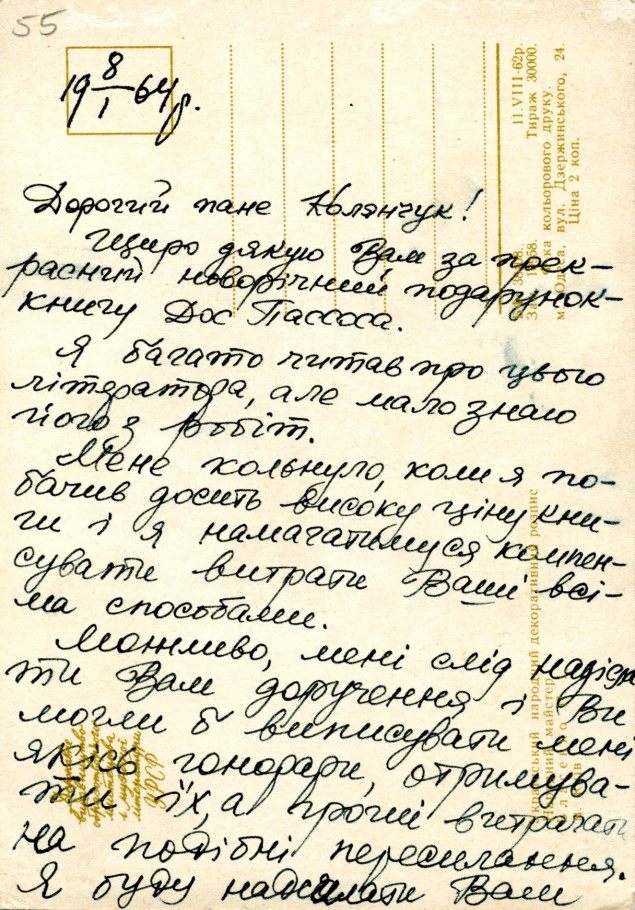 55
19 8/I 64 р.
Дорогий пане Колянчук!
Щиро дякую Вам за прек-
расний новорічний подарунок-
книгу Дос Пассоса.
Я багато читав про цього
літератора, але мало знаю
його з робіт.
Мене кольнуло, коли я по-
бачив досить високу ціну кни-
ги і я намагатимуся компен-
сувати витрати Ваші всі-
ма способами.
Можливо, мені слід надісла
ти Вам доручення і Ви
могли б виписувати мені
якісь гонорари, отримува-
ти їх, а гроші витрачати
на подібні пересилання.
Я буду надсилати Вам
11.VIII-62р.
Тираж 30000.
кольорового друку.
вул. Дзержинського, 24.
Ціна 2 коп.
Український народний декоративний розпис
УРСР